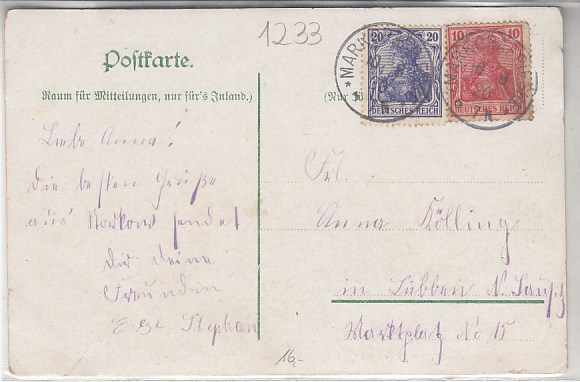 1233
Postkarte.
Raum für Mitteilungen, nur für's Inland.)
(Nur für
20 20
DEUTSCHES REICH
10 10
DEUTSCHES REICH
Liebe Anna!
Die besten Grüße
aus Markow sendet
Dir deine
Freundin
Stephan
Frl.
Anna Kölling
in Lübben N. Lausitz
Marktplatz No 15
16,-